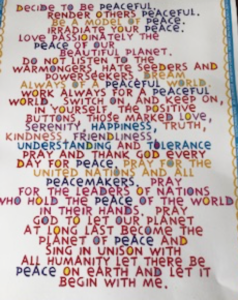 DECIDE TO BE PEACEFUL.
RENDER OTHERS PEACEFUL.
BE A MODEL OF PEACE.
IRRADIATE YOUR PEACE.
LOVE PASSIONATELY THE
PEACE OF OUR
BEAUTIFUL PLANET.
DO NOT LISTEN TO THE
WARMONGERS, HATE SEEDERS AND
POWERSEEKERS. DREAM
ALWAYS OF A PEACEFUL WORLD.
WORK ALWAYS FOR A PEACEFUL
WORLD. SWITCH ON AND KEEP ON,
IN YOURSELF, THE POSITIVE
BUTTONS, THOSE MARKED LOVE,
SERENITY, HAPPINESS, TRUTH,
KINDNESS, FRIENDLINESS,
UNDERSTANDING AND TOLERANCE
PRAY AND THANK GOD EVERY
DAY FOR PEACE. PRAY FOR THE
UNITED NATIONS AND ALL
PEACEMAKERS. PRAY
FOR THE LEADERS OF NATIONS
WHO HOLD THE PEACE OF THE WORLD
IN THEIR HANDS. PRAY
GOD TO LET OUR PLANET
AT LONG LAST BECOME THE
PLANET OF PEACE AND
SING IN UNISON WITH
ALL HUMANITY LET THERE BE
PEACE ON EARTH AND LET IT
BEGIN WITH ME.